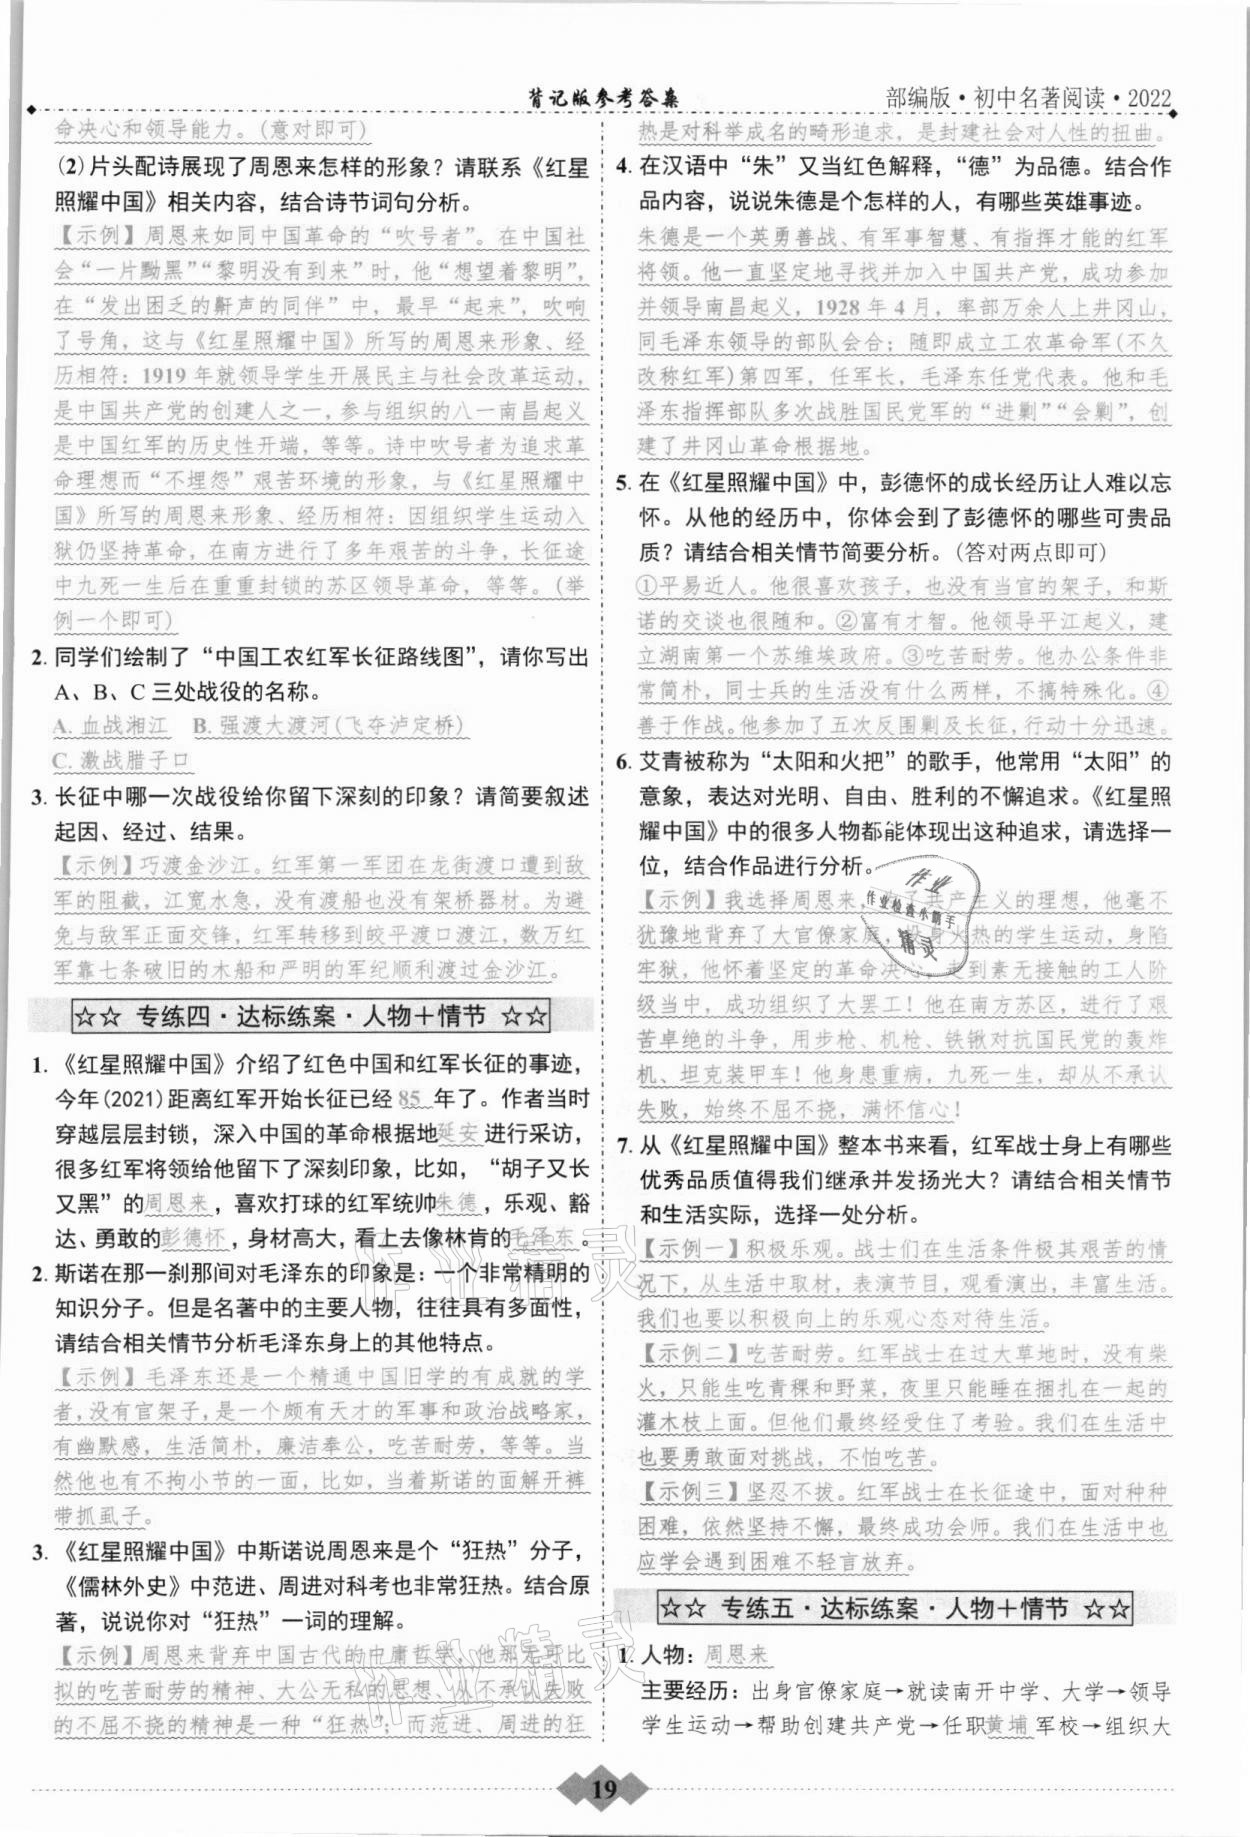 背记版参考答案
部编版·初中名著阅读·2022
命决心和领导能力。(意对即可)
(2)片头配诗展现了周恩来怎样的形象？请联系《红星
照耀中国》相关内容，结合诗节词句分析。
【示例】周恩来如同中国革命的“吹号者”。在中国社
会“一片黝黑”“黎明没有到来”时，他“想望着黎明”，
在“发出困乏的鼾声的同伴”中，最早“起来”，吹响
了号角，这与《红星照耀中国》所写的周恩来形象、经
历相符：1919年就领导学生开展民主与社会改革运动，
是中国共产党的创建人之一，参与组织的八一南昌起义
是中国红军的历史性开端，等等。诗中吹号者为追求革
命理想而“不埋怨”艰苦环境的形象，与《红星照耀中
国》所写的周恩来形象、经历相符：因组织学生运动入
狱仍坚持革命，在南方进行了多年艰苦的斗争，长征途
中九死一生后在重重封锁的苏区领导革命，等等。(举
例一个即可)
2. 同学们绘制了“中国工农红军长征路线图”，请你写出
A、B、C三处战役的名称。
A. 血战湘江 B. 强渡大渡河(飞夺泸定桥)
C. 激战腊子口
3. 长征中哪一次战役给你留下深刻的印象？请简要叙述
起因、经过、结果。
【示例】巧渡金沙江。红军第一军团在龙街渡口遭到敌
军的阻截，江宽水急，没有渡船也没有架桥器材。为避
免与敌军正面交锋，红军转移到皎平渡口渡江，数万红
军靠七条破旧的木船和严明的军纪顺利渡过金沙江。
☆☆ 专练四·达标练案·人物＋情节 ☆☆
1. 《红星照耀中国》介绍了红色中国和红军长征的事迹，
今年(2021)距离红军开始长征已经 85 年了。作者当时
穿越层层封锁，深入中国的革命根据地延安进行采访，
很多红军将领给他留下了深刻印象，比如，“胡子又长
又黑”的周恩来，喜欢打球的红军统帅朱德，乐观、豁
达、勇敢的彭德怀，身材高大，看上去像林肯的毛泽东。
2. 斯诺在那一刹那间对毛泽东的印象是：一个非常精明的
知识分子。但是名著中的主要人物，往往具有多面性，
请结合相关情节分析毛泽东身上的其他特点。
【示例】毛泽东还是一个精通中国旧学的有成就的学
者，没有官架子，是一个颇有天才的军事和政治战略家，
有幽默感，生活简朴，廉洁奉公，吃苦耐劳，等等。当
然他也有不拘小节的一面，比如，当着斯诺的面解开裤
带抓虱子。
3. 《红星照耀中国》中斯诺说周恩来是个“狂热”分子，
《儒林外史》中范进、周进对科考也非常狂热。结合原
著，说说你对“狂热”一词的理解。
【示例】周恩来背弃中国古代的中庸哲学，他那无可比
拟的吃苦耐劳的精神、大公无私的思想、从不承认失败
的不屈不挠的精神是一种“狂热”；而范进、周进的狂
热是对科举成名的畸形追求，是封建社会对人性的扭曲。
4. 在汉语中“朱”又当红色解释，“德”为品德。结合作
品内容，说说朱德是个怎样的人，有哪些英雄事迹。
朱德是一个英勇善战、有军事智慧、有指挥才能的红军
将领。他一直坚定地寻找并加入中国共产党，成功参加
并领导南昌起义，1928年4月，率部万余人上井冈山，
同毛泽东领导的部队会合；随即成立工农革命军(不久
改称红军)第四军，任军长，毛泽东任党代表。他和毛
泽东指挥部队多次战胜国民党军的“进剿”“会剿”，创
建了井冈山革命根据地。
5. 在《红星照耀中国》中，彭德怀的成长经历让人难以忘
怀。从他的经历中，你体会到了彭德怀的哪些可贵品
质？请结合相关情节简要分析。(答对两点即可)
①平易近人。他很喜欢孩子，也没有当官的架子，和斯
诺的交谈也很随和。②富有才智。他领导平江起义，建
立湖南第一个苏维埃政府。③吃苦耐劳。他办公条件非
常简朴，同士兵的生活没有什么两样，不搞特殊化。④
善于作战。他参加了五次反围剿及长征，行动十分迅速。
6. 艾青被称为“太阳和火把”的歌手，他常用“太阳”的
意象，表达对光明、自由、胜利的不懈追求。《红星照
耀中国》中的很多人物都能体现出这种追求，请选择一
位，结合作品进行分析。
【示例】我选择周恩来，为了共产主义的理想，他毫不
犹豫地背弃了大官僚家庭，投身火热的学生运动，身陷
牢狱，他怀着坚定的革命决心，走到素无接触的工人阶
级当中，成功组织了大罢工！他在南方苏区，进行了艰
苦卓绝的斗争，用步枪、机枪、铁锹对抗国民党的轰炸
机、坦克装甲车！他身患重病，九死一生，却从不承认
失败，始终不屈不挠，满怀信心！
7. 从《红星照耀中国》整本书来看，红军战士身上有哪些
优秀品质值得我们继承并发扬光大？请结合相关情节
和生活实际，选择一处分析。
【示例一】积极乐观。战士们在生活条件极其艰苦的情
况下，从生活中取材，表演节目，观看演出，丰富生活。
我们也要以积极向上的乐观心态对待生活。
【示例二】吃苦耐劳。红军战士在过大草地时，没有柴
火，只能生吃青稞和野菜，夜里只能睡在捆扎在一起的
灌木枝上面。但他们最终经受住了考验。我们在生活中
也要勇敢面对挑战，不怕吃苦。
【示例三】坚忍不拔。红军战士在长征途中，面对种种
困难，依然坚持不懈，最终成功会师。我们在生活中也
应学会遇到困难不轻言放弃。
☆☆ 专练五·达标练案·人物＋情节 ☆☆
1. 人物：周恩来
主要经历：出身官僚家庭→就读南开中学、大学→领导
学生运动→帮助创建共产党→任职黄埔军校→组织大
19
作业
作业检查小帮手
精灵
作业精灵
作业精灵